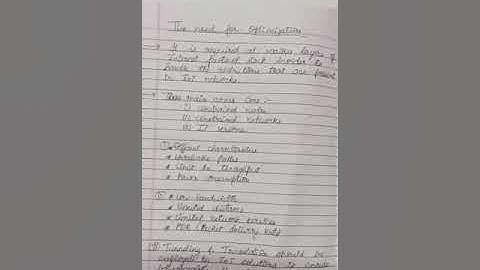 The need for optimization
→ It is required at various layers of
Internet protocol stack inorder to
handle the restrictions that are present
in IoT networks.
• Three main areas are :-
I) constrained nodes
II) constrained networks
III) IP versions
① • Different characteristics
• Unreliable paths
• Limit in throughput
• Power consumption
② • Low bandwidth
• limited distance
• limited network
• PDR (Packet delivery rate)
③ Tunneling & Translation should be
employed in IoT solutions to ensure